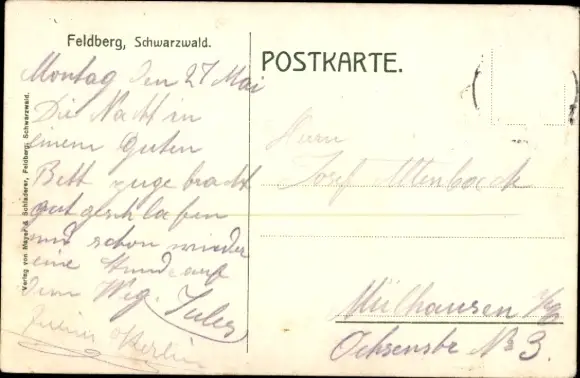 Feldberg, Schwarzwald.
Montag den 27 Mai
Die Nacht in
einem Guten
Bett zugebracht
gut geschlafen
und schon wieder
eine Stunde auf
dem Weg. Jules
POSTKARTE.
Herrn
Josef Altenback
Mülhausen
Ochsenstr No 3.
Verlag von Mayer & Schladerer, Feldberg, Schwarzwald.